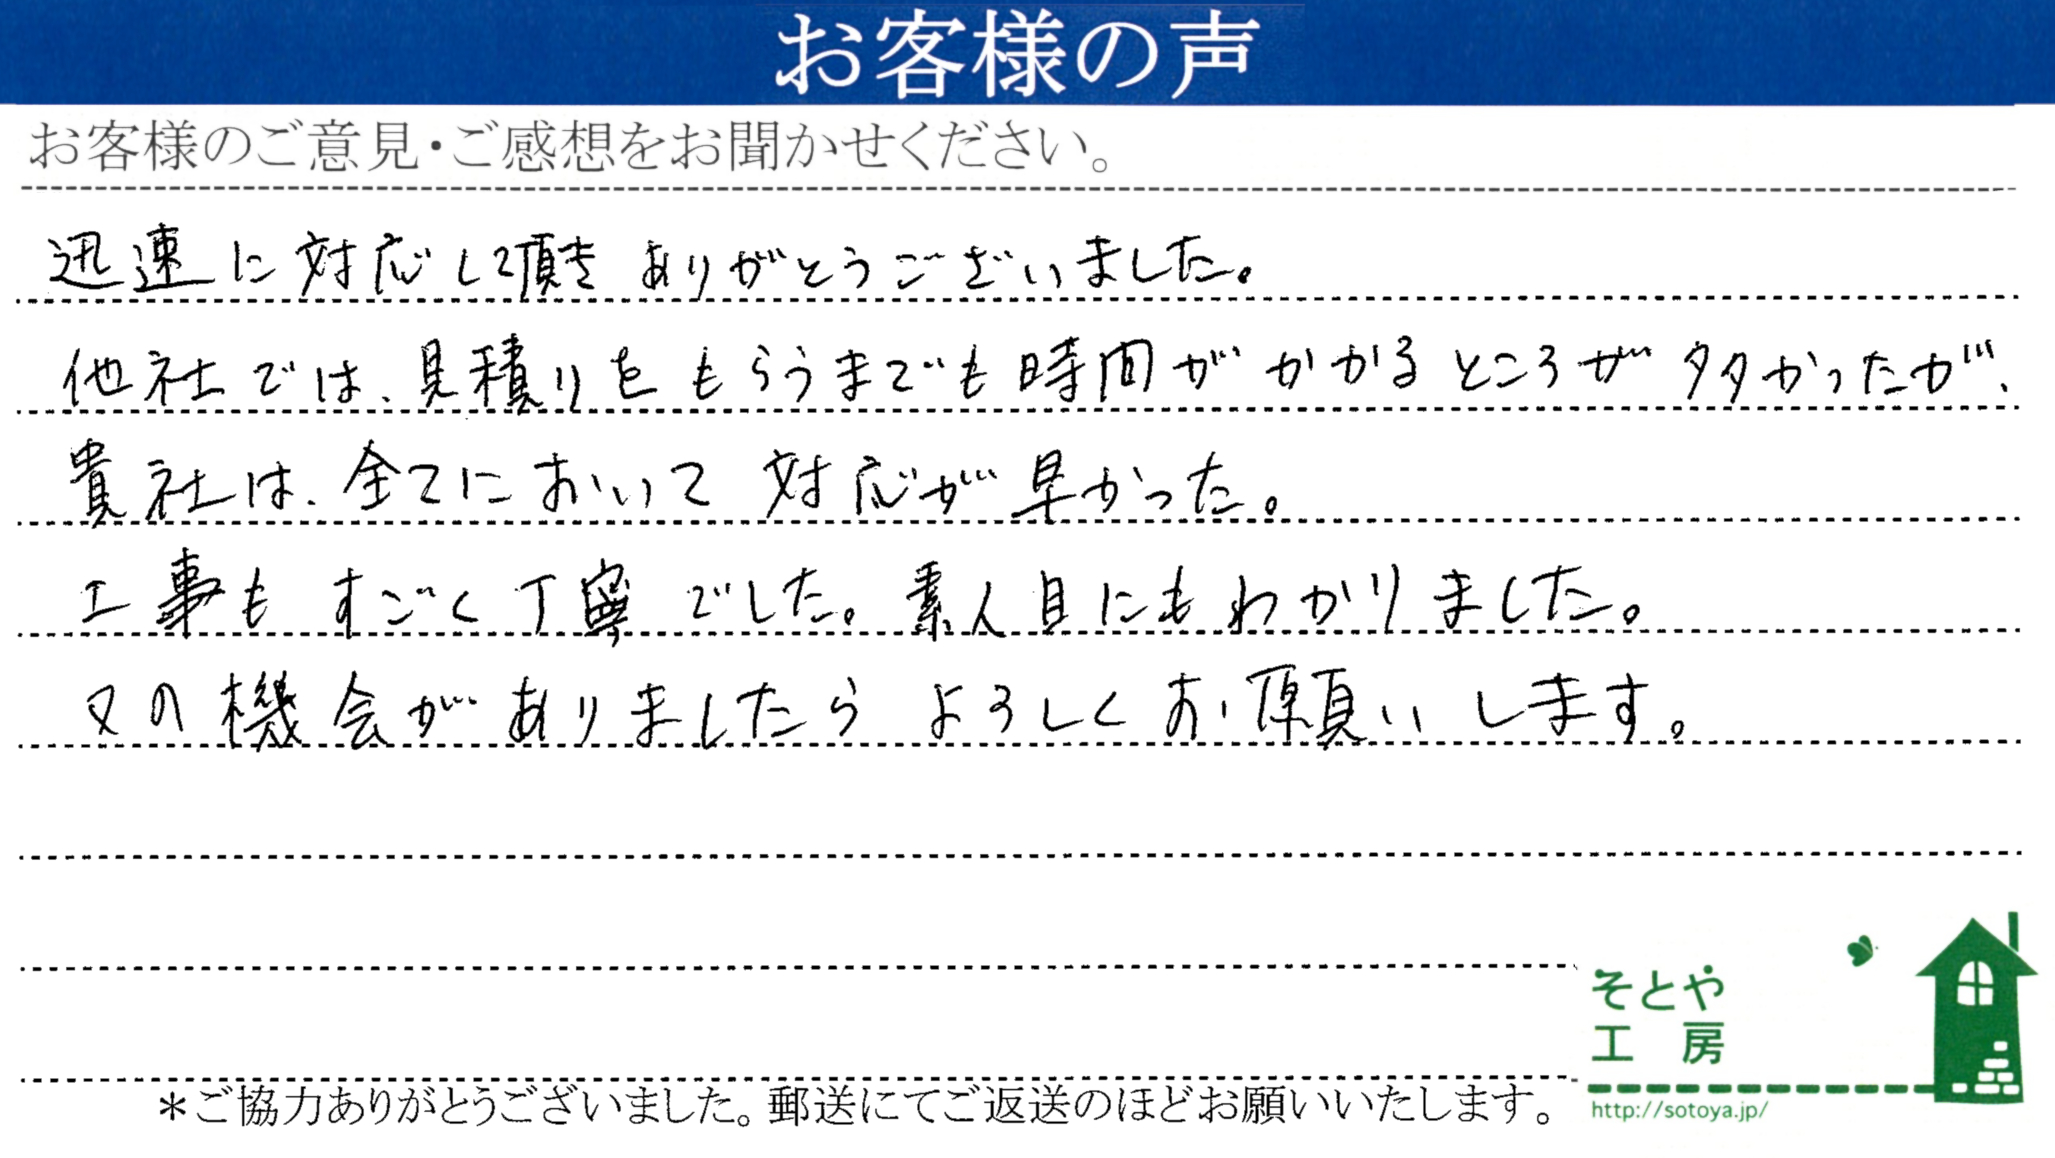 お客様の声
お客様のご意見・ご感想をお聞かせください。
迅速に対応して頂き ありがとうございました。
他社では、見積りをもらうまでも時間がかかるところが多かったが、
貴社は、全てにおいて対応が早かった。
工事もすごく丁寧でした。素人目にもわかりました。
又の機会がありましたら よろしくお願いします。
そとや
工房
＊ご協力ありがとうございました。郵送にてご返送のほどお願いいたします。
http://sotoya.jp/